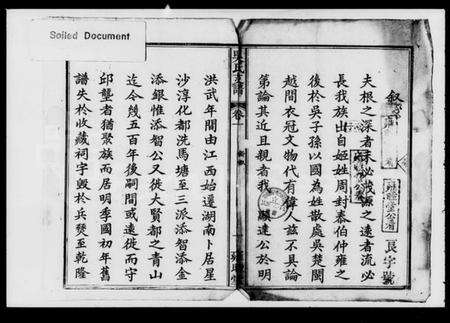 Soiled Document
良字號
夫根之深者末必茂源之遠者流必
長我族出自姬姓周封泰伯仲雍之
後於吳子孫以國為姓散處吳楚閩
越間衣冠文物代有偉人茲不具論
第論其近且親者我 顯達公於明
吳氏支譜 卷一
洪武年間由江西始遷湖南卜居星
沙淳化都洗馬塘至三派添智添金
添銀惟添智公又徙大賢都之青山
迄今幾五百年後嗣間或遠徙而守
邱壟者猶聚族而居明季國初年舊
譜失於收藏祠宇毀於兵燹至乾隆